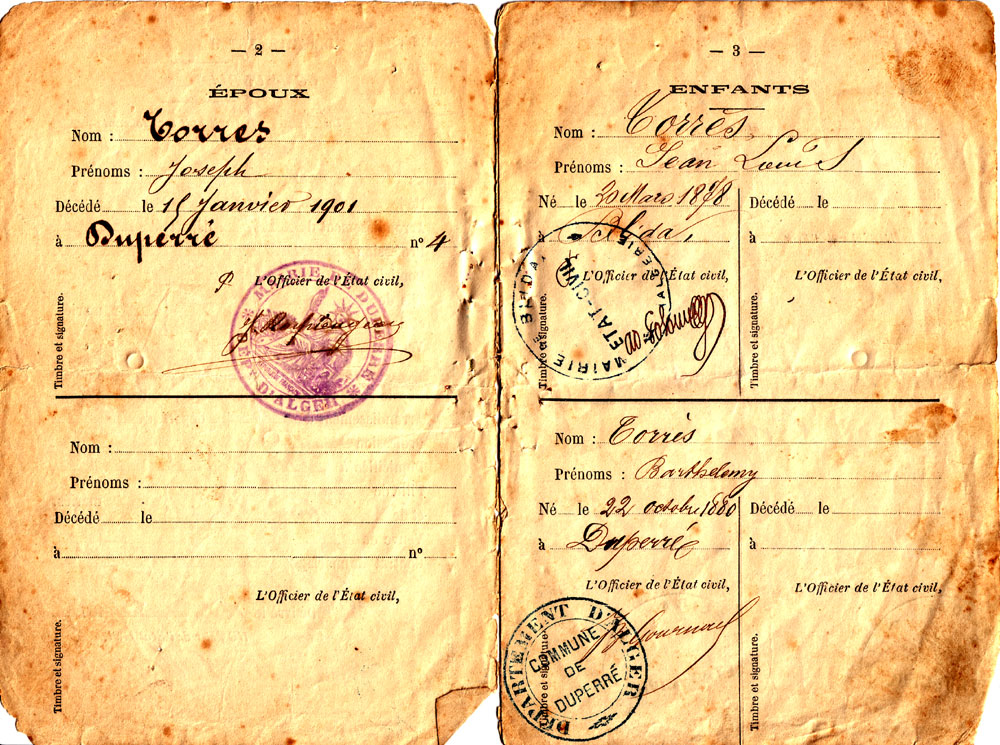 — 2 —
ÉPOUX
Nom : Torres
Prénoms : Joseph
Décédé le 15 Janvier 1901
à Duperré nº 4
L'Officier de l'État civil,
Timbre et signature.
MAIRIE DE DUPERRÉ
D'ALGER
Nom :
Prénoms :
Décédé le
à nº
L'Officier de l'État civil,
Timbre et signature.
— 3 —
ENFANTS
Nom : Torrès
Prénoms : Jean Louis
Né le Mars 1878
à Blida,
L'Officier de l'État civil,
Timbre et signature.
MAIRIE
ETAT-CIVIL
Décédé le
à
L'Officier de l'État civil,
Timbre et signature.
Nom : Torrés
Prénoms : Barthelemy
Né le 22 octobre 1880
à Duperré
L'Officier de l'État civil,
Timbre et signature.
DÉPARTEMENT D'ALGER
COMMUNE
DE
DUPERRÉ
Décédé le
à
L'Officier de l'État civil,
Timbre et signature.